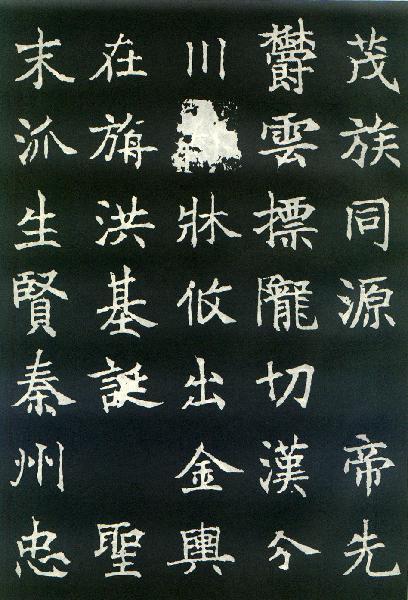 茂族同源 帝先
欝雲標隴切漢分
川牀攸出金輿
在旃洪基誕 聖
末派生賢秦州 忠